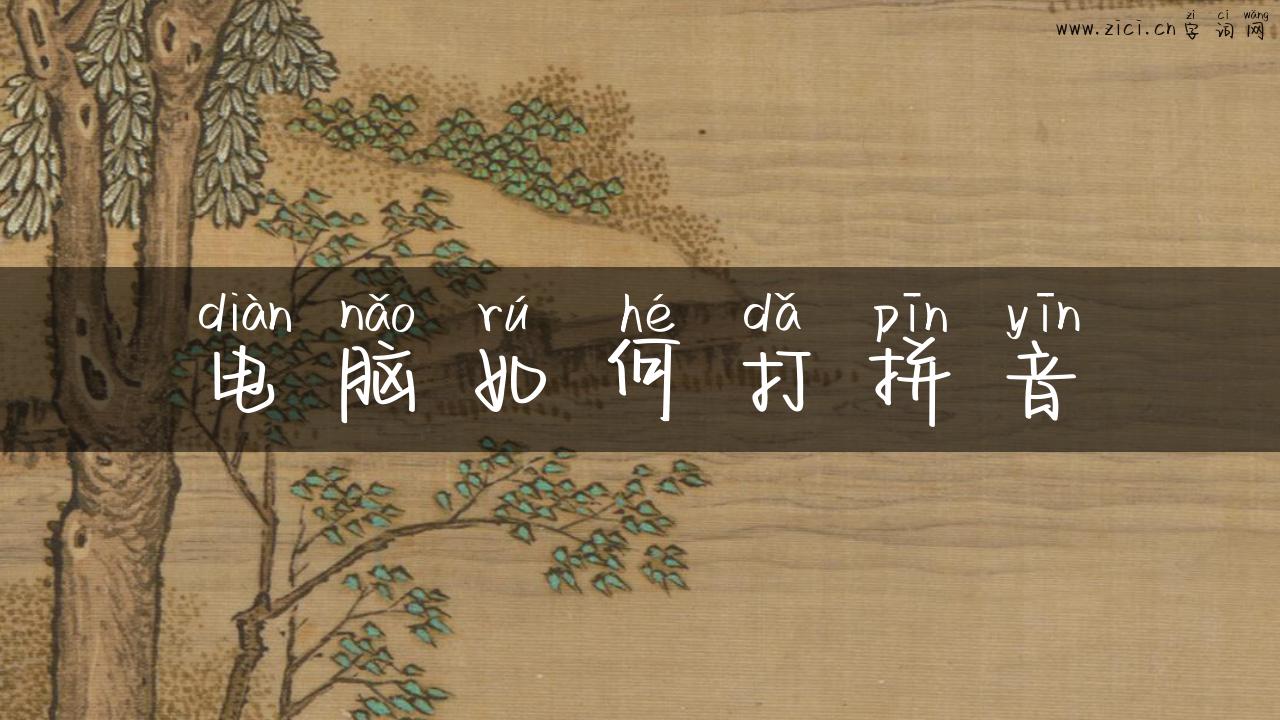 zì cí wǎng
www.zici.cn 字词网
diàn nǎo rú hé dǎ pīn yīn
电脑如何打拼音